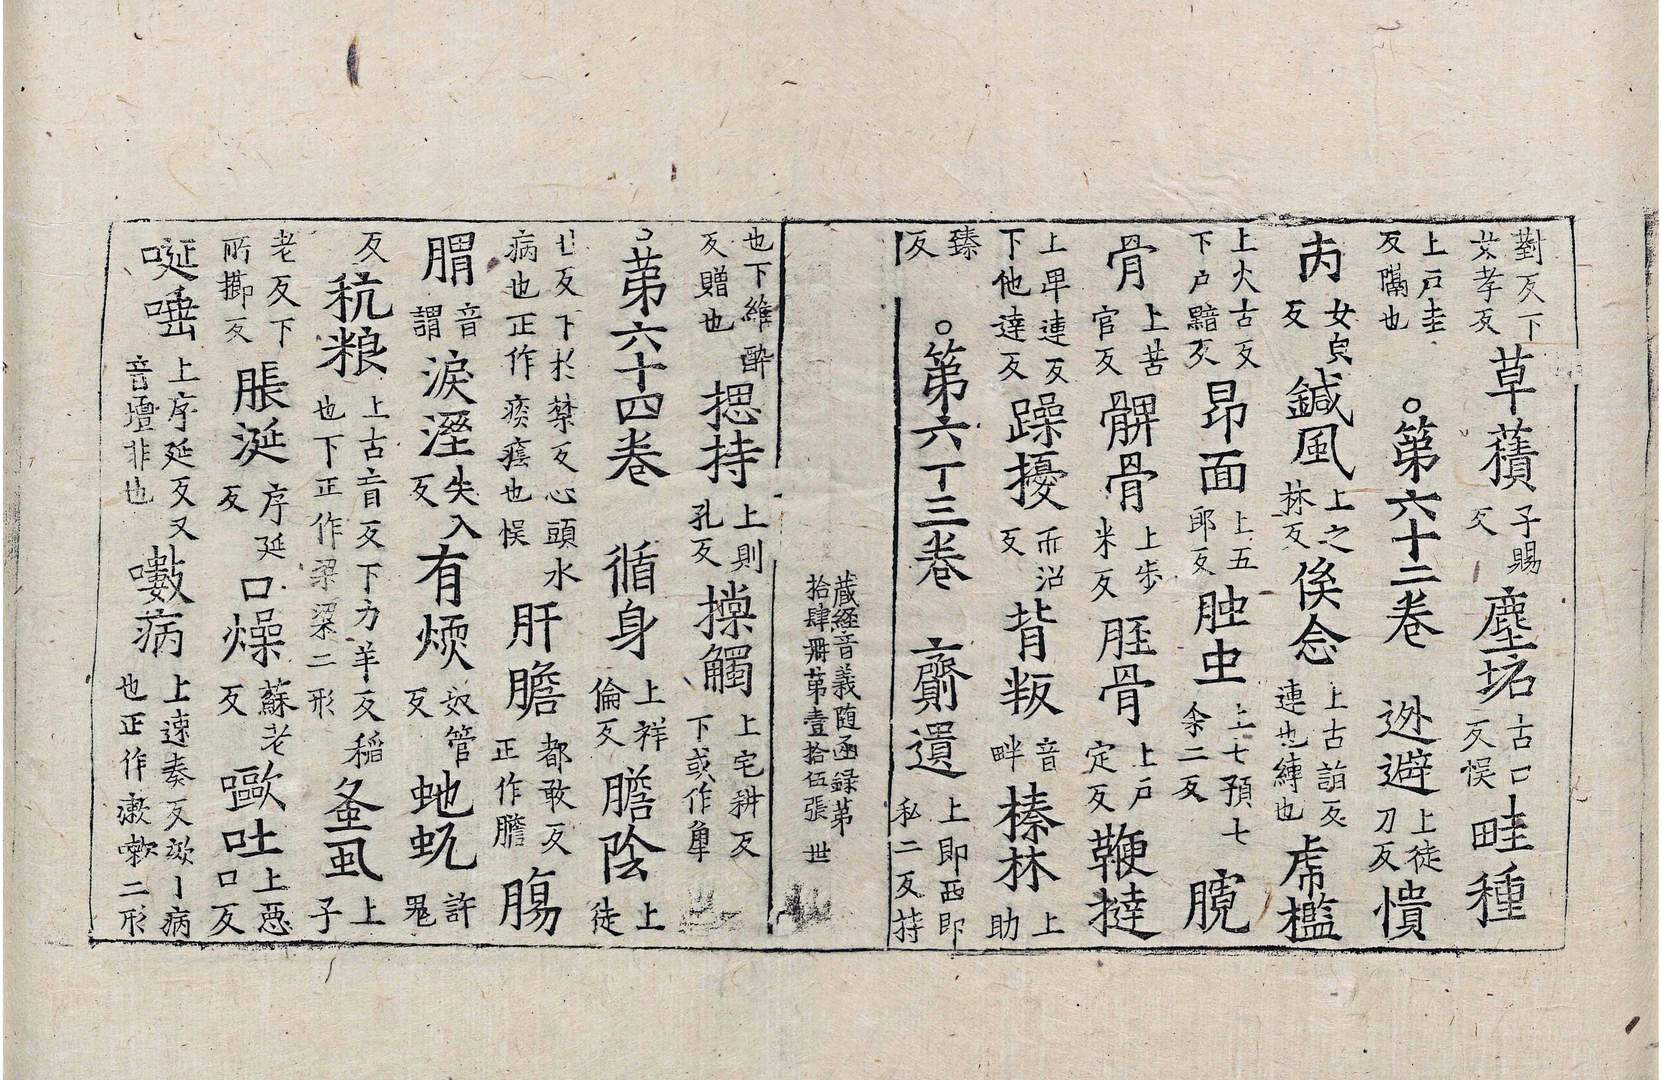 對反下苃孝反草䕆子賜反塵坸古口反悞畦種
上戸圭反隔也。第六十二卷 迯避上徒刀反憒
丙女皃反鍼風上之林反俟念上古詣反連也縛也虎檻
上火古反下戸黯反昂面上五郎反胆虫上七預七余二反臗
骨上苦官反髀骨上步米反脛骨上戸定反鞭撻
上卑連反下他達反躁擾而沼反背叛音畔榛林上助
臻反。第六丁三卷 齎遺上即西即私二反持
藏経音義随函録第拾肆冊第壹拾伍張 世
也下維醉反贈也揌持上則孔反㨃觸上宅耕反下或作𧢲
。第六十四卷 循身上祥倫反膽陰上徒
反下於禁反心頭水病也正作痰癊也悞肝膽都敢反正作膽腸
胃音謂淚溼失入反有煗奴管反虵虺許鬼
反秔粮上古肓反下力羊反稲也下正作梁粱二形蚤虱上子
老反下所擳反脹涎序延反口燥蘇老反歐吐上惡口反
唌唾上序延反又音壇非也嗽病上速奏反欬丨病也正作瘶㗜二形